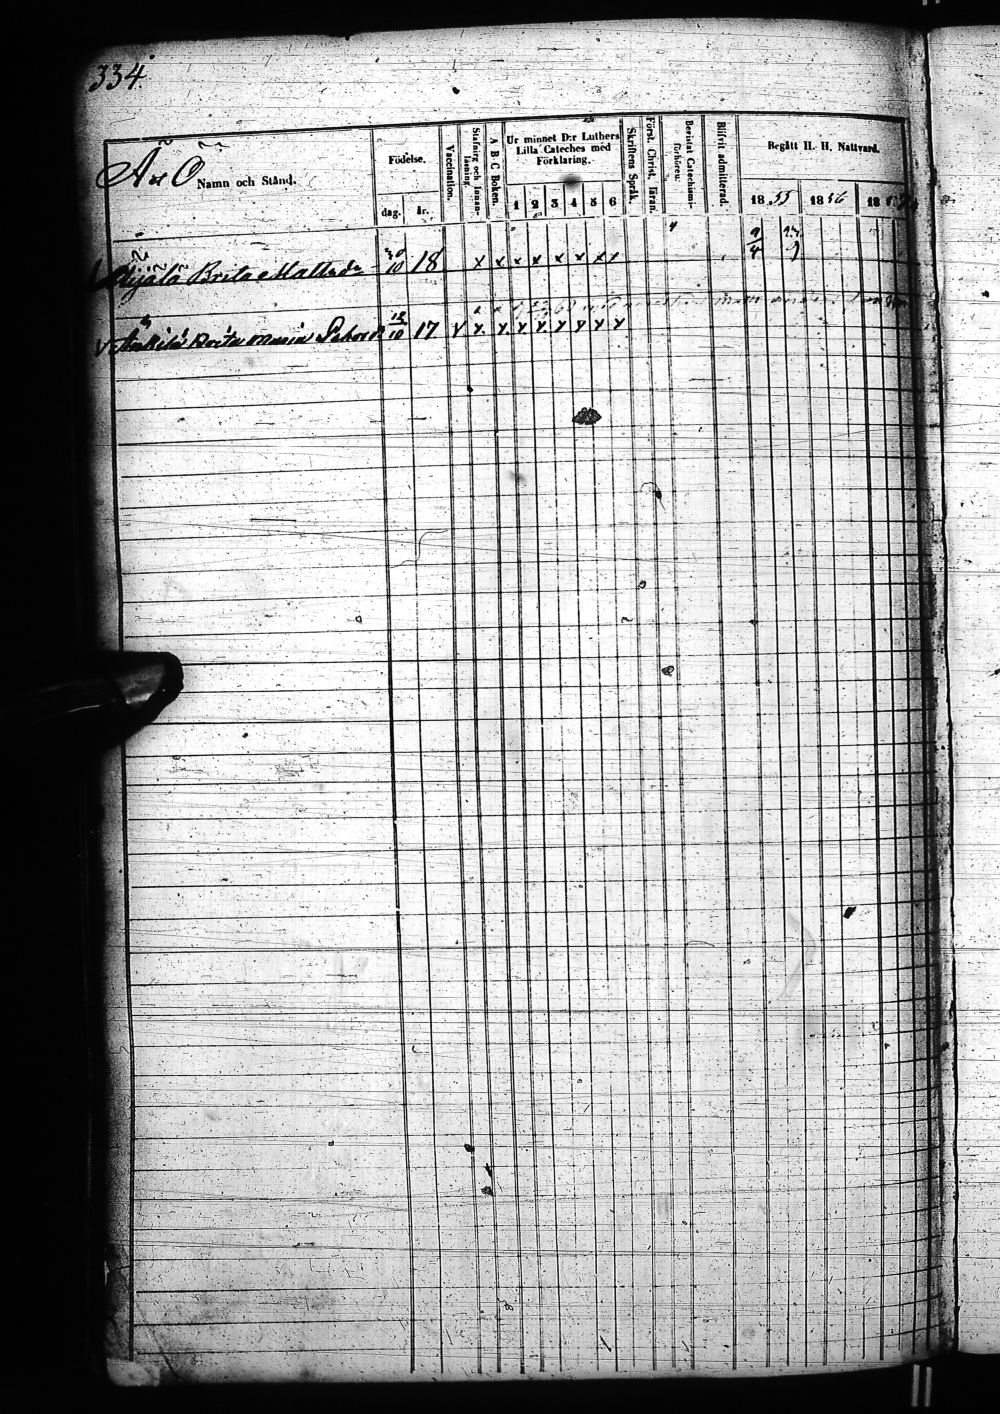 334.
Namn och Stånd.
Födelse.
dag.
år.
Vaccination.
Stafning och Innan-
läsning.
A B C Boken.
Ur minnet D:r Luthers
Lilla Cateches med
Förklaring.
1 2 3 4 5 6
Skriftens Språk.
Först. Christ. läran.
Bevistat Catechismi-
förhören.
Blifvit admitterad.
Begått H. H. Nattvard.
18 55 18 56 18
Brita Mattsdr 30/10 18 x x x x x x x x 9/4
Brita Maria 12/10 17 V x x x x x x x x